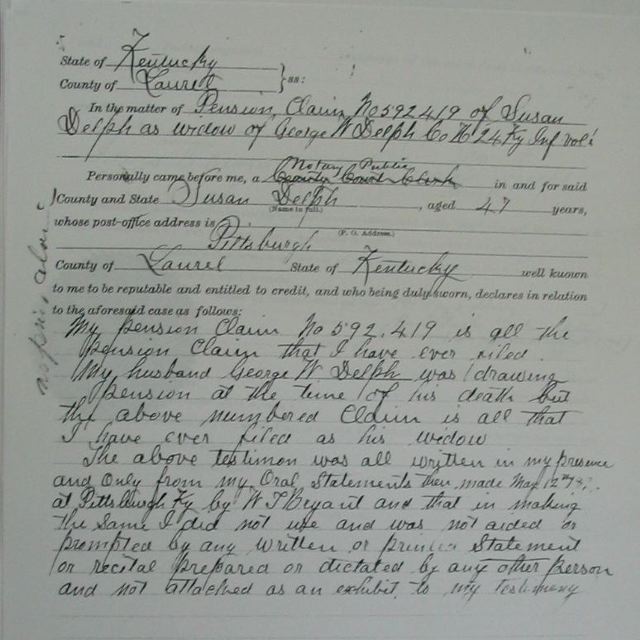 State of Kentucky
County of Laurel } ss:
In the matter of Pension Claim No 592.419 of Susan
Delph as widow of George W Delph Co H 24 Ky Inf vol's
Notary Public
Personally came before me, a County Court Clerk in and for said
County and State Susan Delph, aged 47 years,
(Name in full.)
whose post-office address is Pittsburgh
(P. O. Address.)
County of Laurel State of Kentucky well known
to me to be reputable and entitled to credit, and who being duly sworn, declares in relation
to the aforesaid case as follows:
My pension Claim No 592.419 is all the
Pension Claim that I have ever filed.
My husband George W Delph was drawing
pension at the time of his death but
the above numbered Claim is all that
I have ever filed as his widow
The above testimon was all written in my presence
and Only from my Oral Statements then made May 12
at Pittsburgh Ky by W T Bryant and that in making
the Same I did not use and was not aided or
prompted by any written or printed Statement
or recital prepared or dictated by any other person
and not attached as an exhibit to my testimony